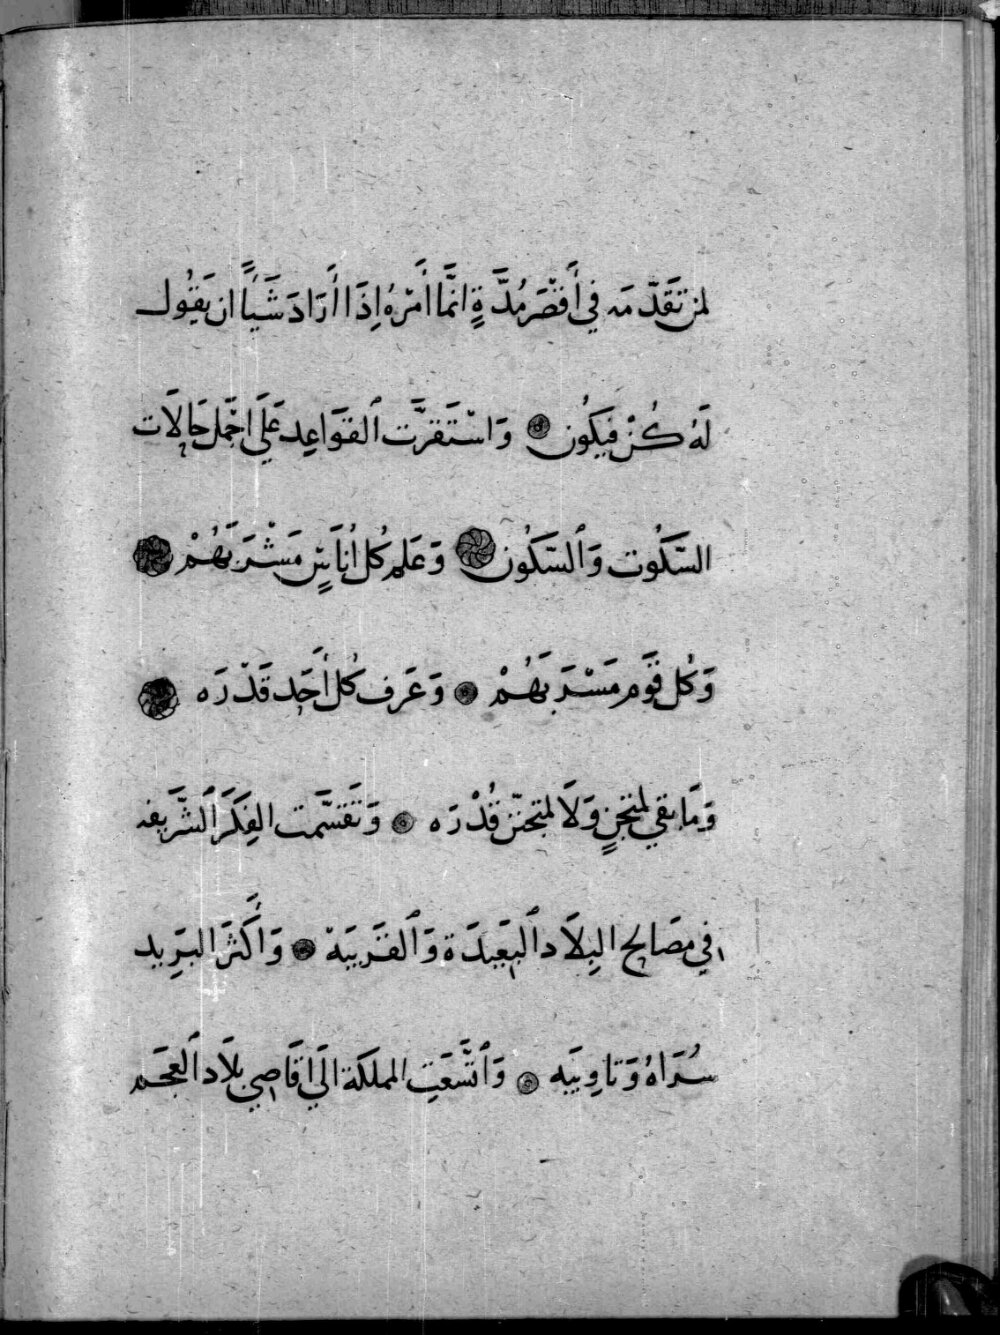 لمن تَقَدَّمَه في أَقْصَر مُدَّةٍ انمَّا أَمْرُهُ اِذَا أَرَادَ شَيْأً ان يَقُول
لَهُ كُنْ فيَكُون وَاسْتَقرَّت ٱلقوَاعِد عَلَى اجْمَل حَالَات
السُّكُوت وَٱلسُّكُون وَعَلِم كُل اُنَاسٍ مَشْرَبَهُمْ
وَكُل قَوَم مَسْرَبَهُمْ وَعَرَف كُل أَحَد قَدْرَه
وَمَا بقي لمتجنٍ وَلَا لمتجنّ قُدْرَه وَتَقسَّمت الفِكَرَ ٱلشَّرِيفه
في مصَالح البِلاَد ٱلبَعِيدَة وَٱلقَرِيبَة وَأَكثَرَ البَرِيد
سُرَاهُ وَتاوِيبَه وَٱتَّسَعَتِ المملكَة الَى اقَاصِي بِلاَد ٱلعَجَم